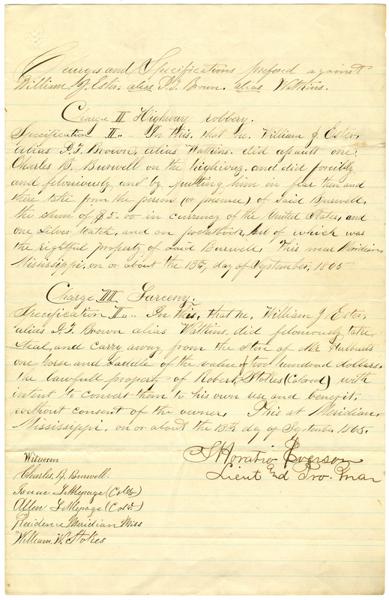 Charges and Specifications prefered against
William J. Estes, alias P.T. Brown, alias Watkins.
Charge II Highway robbery.
Specification II. In this, that he, William J. Estes,
alias P.T. Brown, alias Watkins, did assault one
Charles B. Burwell on the highway, and did forcibly
and feloniously and by putting him in fear then and
there take from the person (or presence) of Said Burwell,
the sum of in currency of the United States, and
one Silver Watch, and one pocketbook, all of which was
the rightful property of Said Burwell. This near Meridian
Mississippi, on or about the 13th, day of September, 1865
Charge III Larceny.
Specification In this, that he, William J. Estes,
alias P.T. Brown alias Watkins, did feloniously take
Steal, and carry away from the of
one horse and Saddle of the value of two hundred dollars.
the lawfull property of Robert Stokes (Colored) with
intent to convert them to his own use and benefit,
without consent of the owner. This at Meridian,
Mississippi, on or about the 13th day of September 1865.
Horatio Everson
Lieut and Pro. Mar
Witnesses
Charles B. Burwell.
(Cold)
Allen (Cold)
Residence Meridian Miss
William W. Stokes